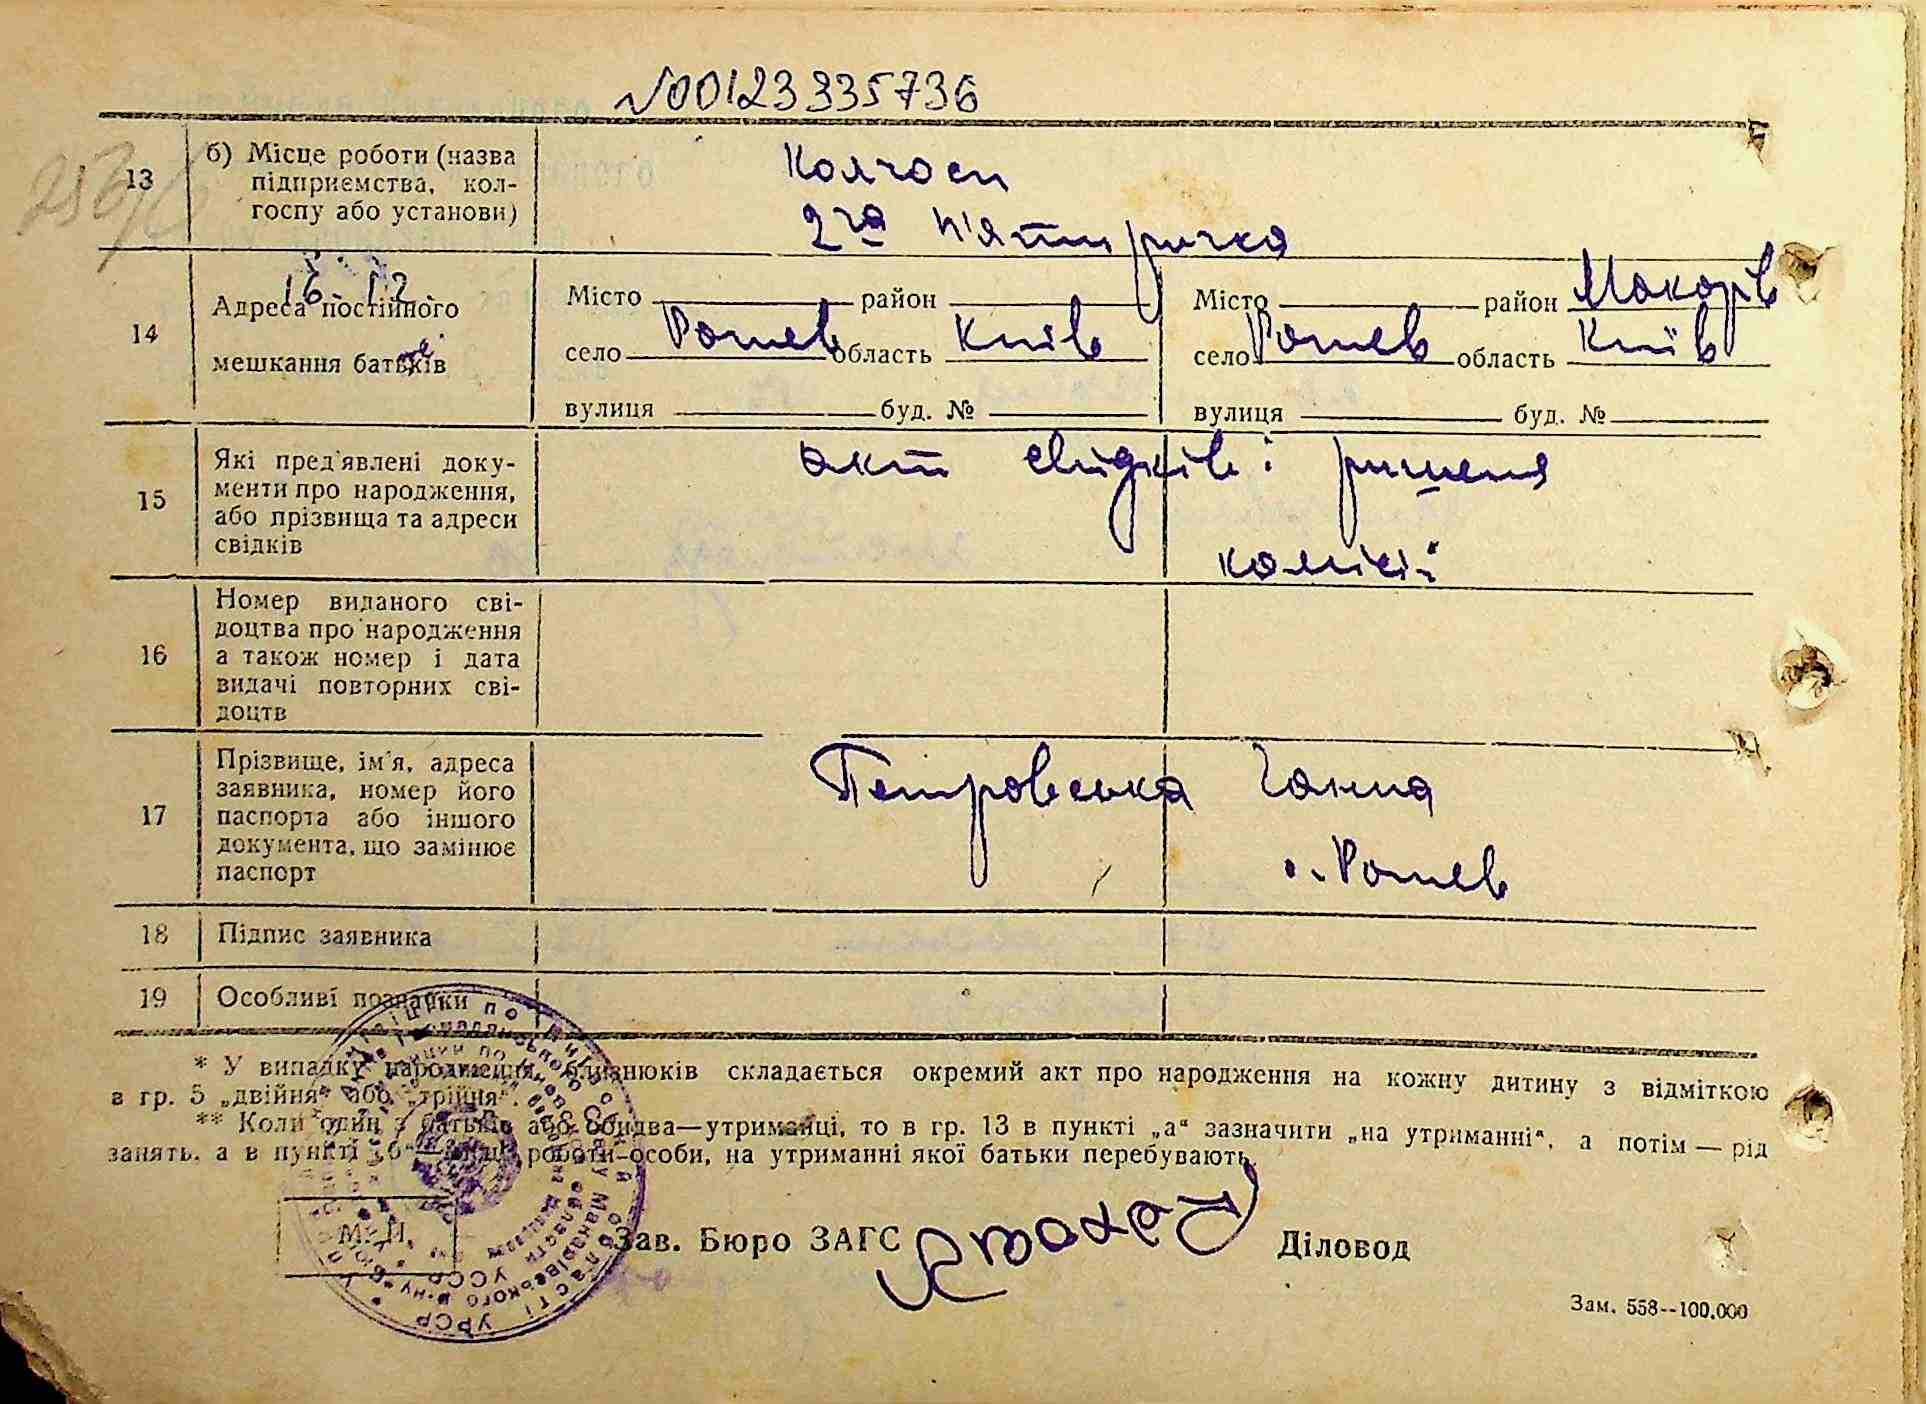 №00123335736
13
б) Місце роботи (назва
підприємства, кол-
госпу або установи)
Колгосп
2га п'ятирічка
14
Адреса постійного
мешкання батьків
Місто район
село Рожев область Київ
вулиця буд. №
Місто район Макарів
село Рожев область Київ
вулиця буд. №
15
Які пред'явлені доку-
менти про народження,
або прізвища та адреси
свідків
акт свидків і ришеня
комісії
16
Номер виданого сві-
доцтва про народження
а також номер і дата
видачі повторних сві-
доцтв
17
Прізвище, ім'я, адреса
заявника, номер його
паспорта або іншого
документа, що замінює
паспорт
Петровська Ганна
с. Рожев
18
Підпис заявника
19
Особливі позначки
* У випадку народження близнюків складається окремий акт про народження на кожну дитину з відміткою
в гр. 5 „двійня“ або „трійня“.
** Коли один з батьків або обидва—утриманці, то в гр. 13 в пункті „а“ зазначити „на утриманні“, а потім — рід
занять, а в пункті „б“ — місце роботи особи, на утриманні якої батьки перебувають.
М. П.
Зав. Бюро ЗАГС
Діловод
Зам. 558--100.000